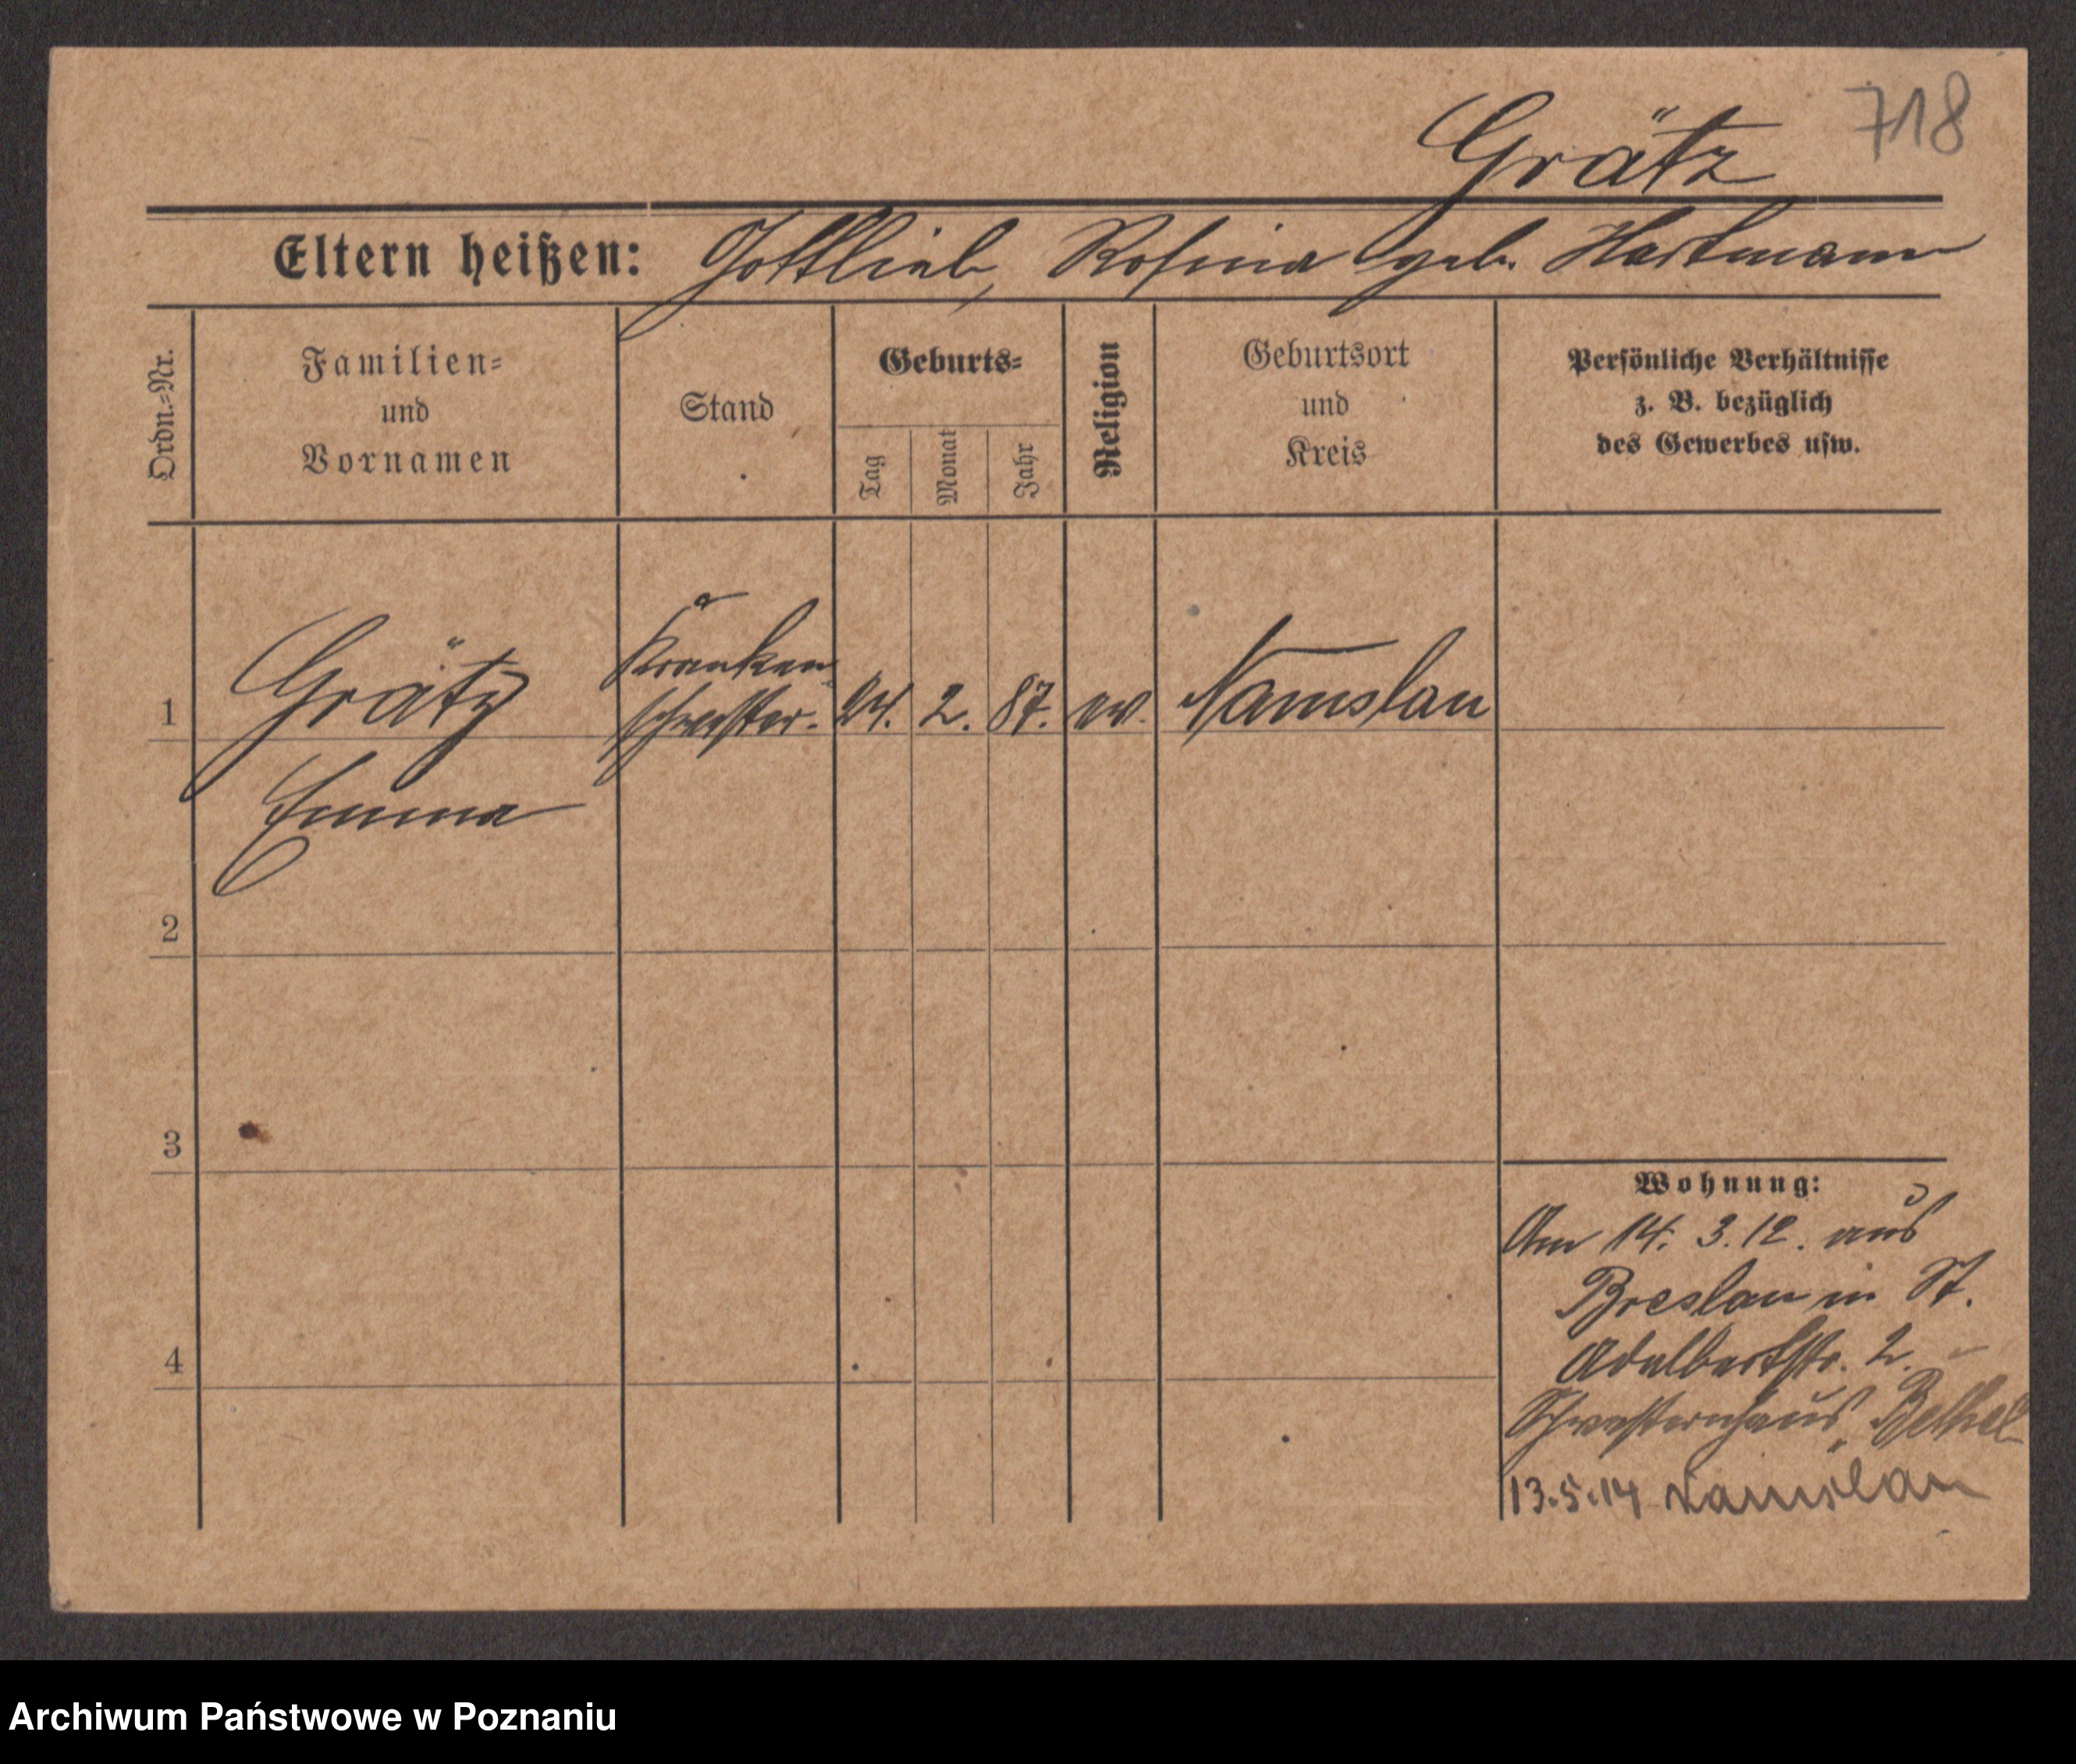 718
Grätz
Eltern heißen: Gottlieb, Rosina geb. Hartmann
Ordn.-Nr.
Familien-
und
Vornamen
Stand
Geburts-
Tag
Monat
Jahr
Religion
Geburtsort
und
Kreis
Persönliche Verhältnisse
z. B. bezüglich
des Gewerbes usw.
1 Grätz Kranken
schwester. 24. 2. 87. ev. Namslau
Emma
2
3
4
Wohnung:
Am 14. 3. 12. aus
Breslau in St.
Adalbertstr. 2.
Schwesternhaus „Bethel
13.5.14 Namslau
Archiwum Państwowe w Poznaniu